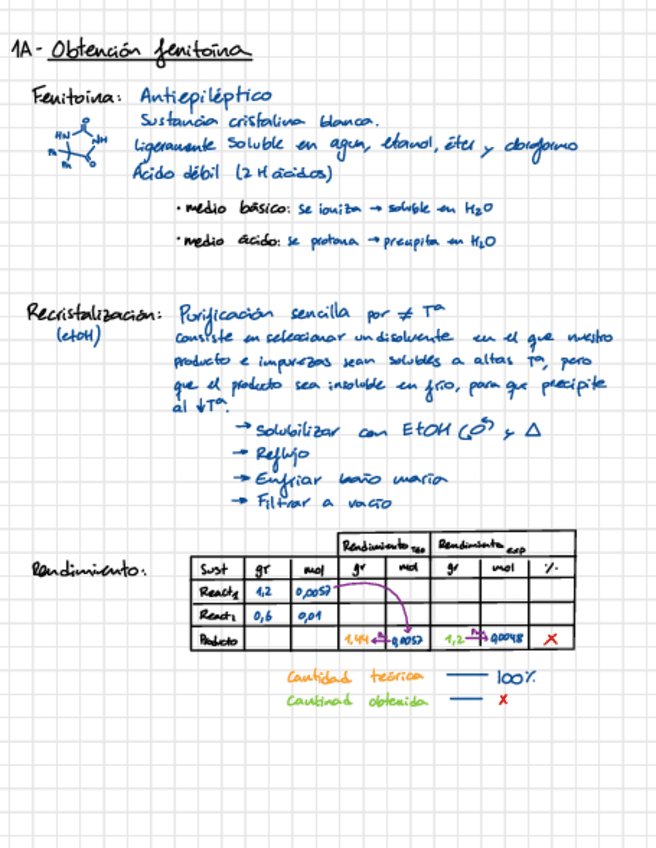 1A - Obtención fenitoína
Fenitoína: Antiepiléptico
Sustancia cristalina blanca.
Ligeramente soluble en agua, etanol, éter y cloroformo
Ácido débil (2 H ácidos)
O
HN NH
Ph
Ph O
· medio básico: se ioniza → soluble en H2O
· medio ácido: se protona → precipita en H2O
Recristalización: Purificación sencilla por ≠ Tª
(etOH) Consiste en seleccionar un disolvente en el que nuestro
producto e impurezas sean solubles a altas Tª, pero
que el producto sea insoluble en frío, para que precipite
al ↓Tª.
→ Solubilizar con EtOH y Δ
→ Reflujo
→ Enfriar baño maría
→ Filtrar a vacío
Rendimiento:
Rendimiento teo Rendimiento exp
Sust gr mol gr mol gr mol %
React1 1,2 0,0057
React2 0,6 0,01
Producto 1,44 0,0057 1,2 0,0048 X
Cantidad teórica — 100%
Cantidad obtenida — X